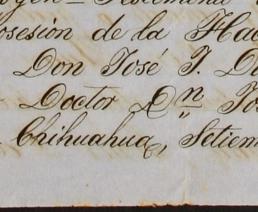 posesión de la Hac
Don José T. D
Doctor Dn Jo
Chihuahua, Setiem